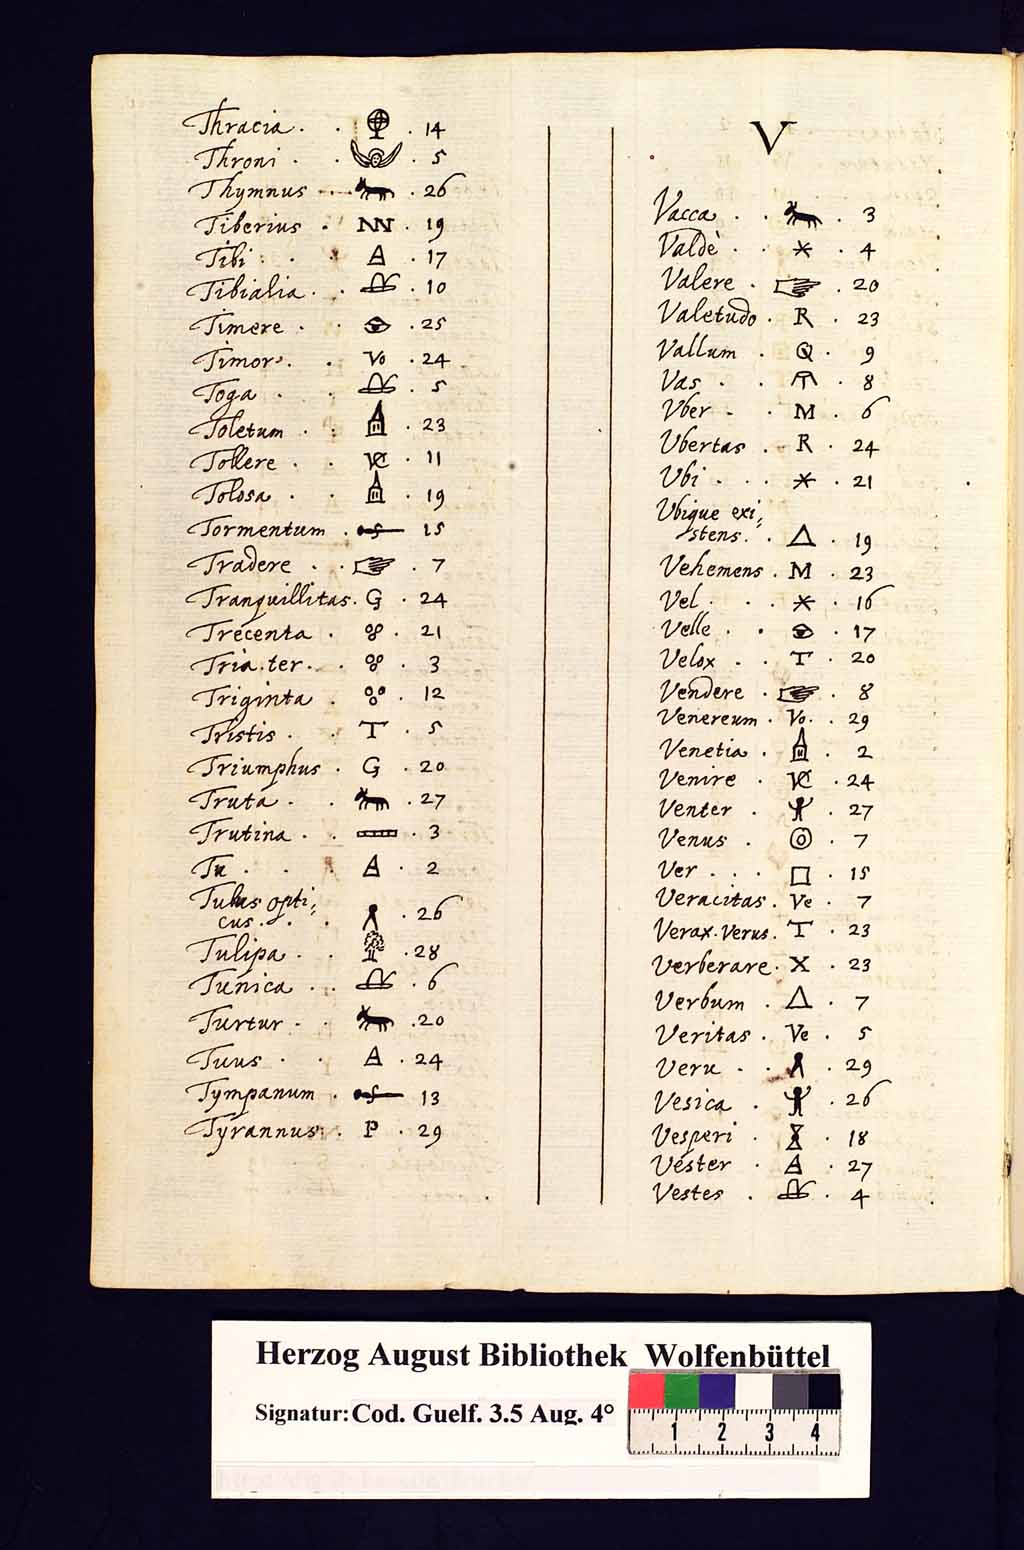 Thracia . . . 14
Throni . . 5
Thymnus . 26
Tiberius . NN . 19
Tibi . . A . 17
Tibialia . . 10
Timere . . . 25
Timor . . Vo . 24
Toga . . . 5
Toletum . . . 23
Tollere . . 11
Tolosa . . . 19
Tormentum . 15
Tradere . . . 7
Tranquillitas . G . 24
Trecenta . . 21
Tria . ter . . . 3
Triginta . . 12
Tristis . . T . 5
Triumphus . G . 20
Truta . . . 27
Trutina . . . 3
Tu . . . A . 2
Tubus opti⸗
cus . . . . 26
Tulipa . . . 28
Tunica . . . 6
Turtur . . . 20
Tuus . . A . 24
Tympanum . 13
Tyrannus . P . 29
V
Vacca . . . 3
Valdè . . . 4
Valere . . 20
Valetudo . R . 23
Vallum . Q . 9
Vas . . . 8
Vber . . M . 6
Vbertas . R . 24
Vbi . . . . 21
Vbique exi⸗
stens . . △ . 19
Vehemens . M . 23
Vel . . . . 16
Velle . . . 17
Velox . . T . 20
Vendere . . 8
Venereum . Vo . 29
Venetia . . 2
Venire . . 24
Venter . . 27
Venus . . 7
Ver . . . □ . 15
Veracitas . Ve . 7
Verax . Verus . T . 23
Verberare . X . 23
Verbum . △ . 7
Veritas . Ve . 5
Veru . . . 29
Vesica . . 26
Vesperi . . 18
Vester . A . 27
Vestes . . 4
Herzog August Bibliothek Wolfenbüttel
Signatur: Cod. Guelf. 3.5 Aug. 4°
1 2 3 4